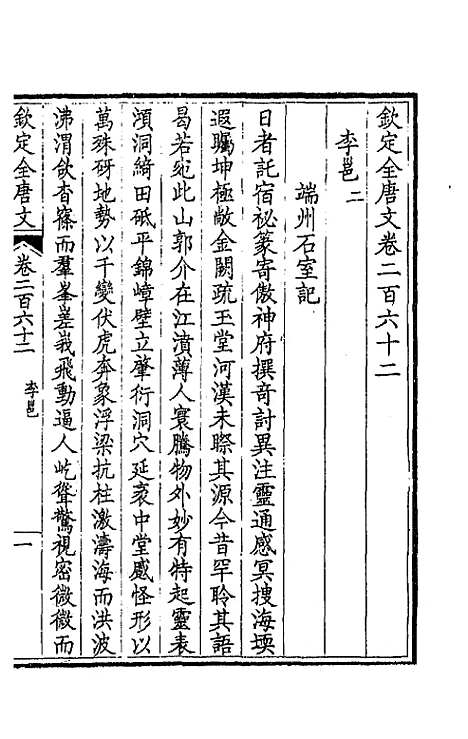 欽定全唐文卷二百六十二
李邕二
端州石室記
日者託宿祕篆寄傲神府撰竒討異注靈通感冥搜海堧
遐矚坤極敞金闕疏玉堂河漢未際其源今昔罕聆其語
曷若宛此山郭介在江濆薄人寰騰物外妙有特起靈表
澒洞綺田砥平錦嶂壁立肇衍洞穴延袤中堂感怪形以
萬殊砑地勢以千變伏虎奔象浮梁抗柱激濤海而洪波
沸渭欲杳窱而羣峯嵳峩飛動逼人屹聳驚視密微微而
欽定全唐文 卷二百六十二 李邕 一